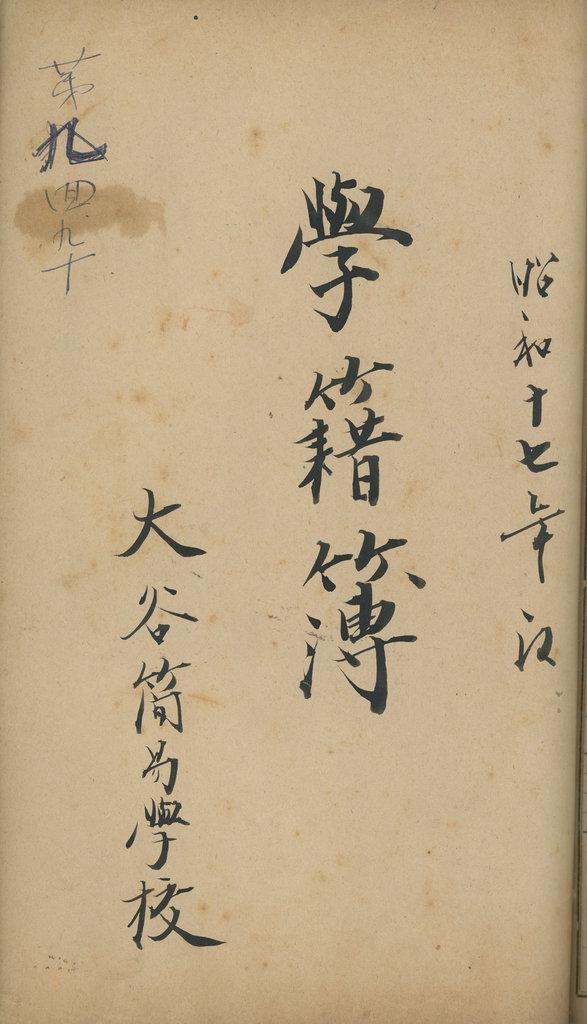 昭和十七年
學籍簿
大谷簡易學校
第九四九十